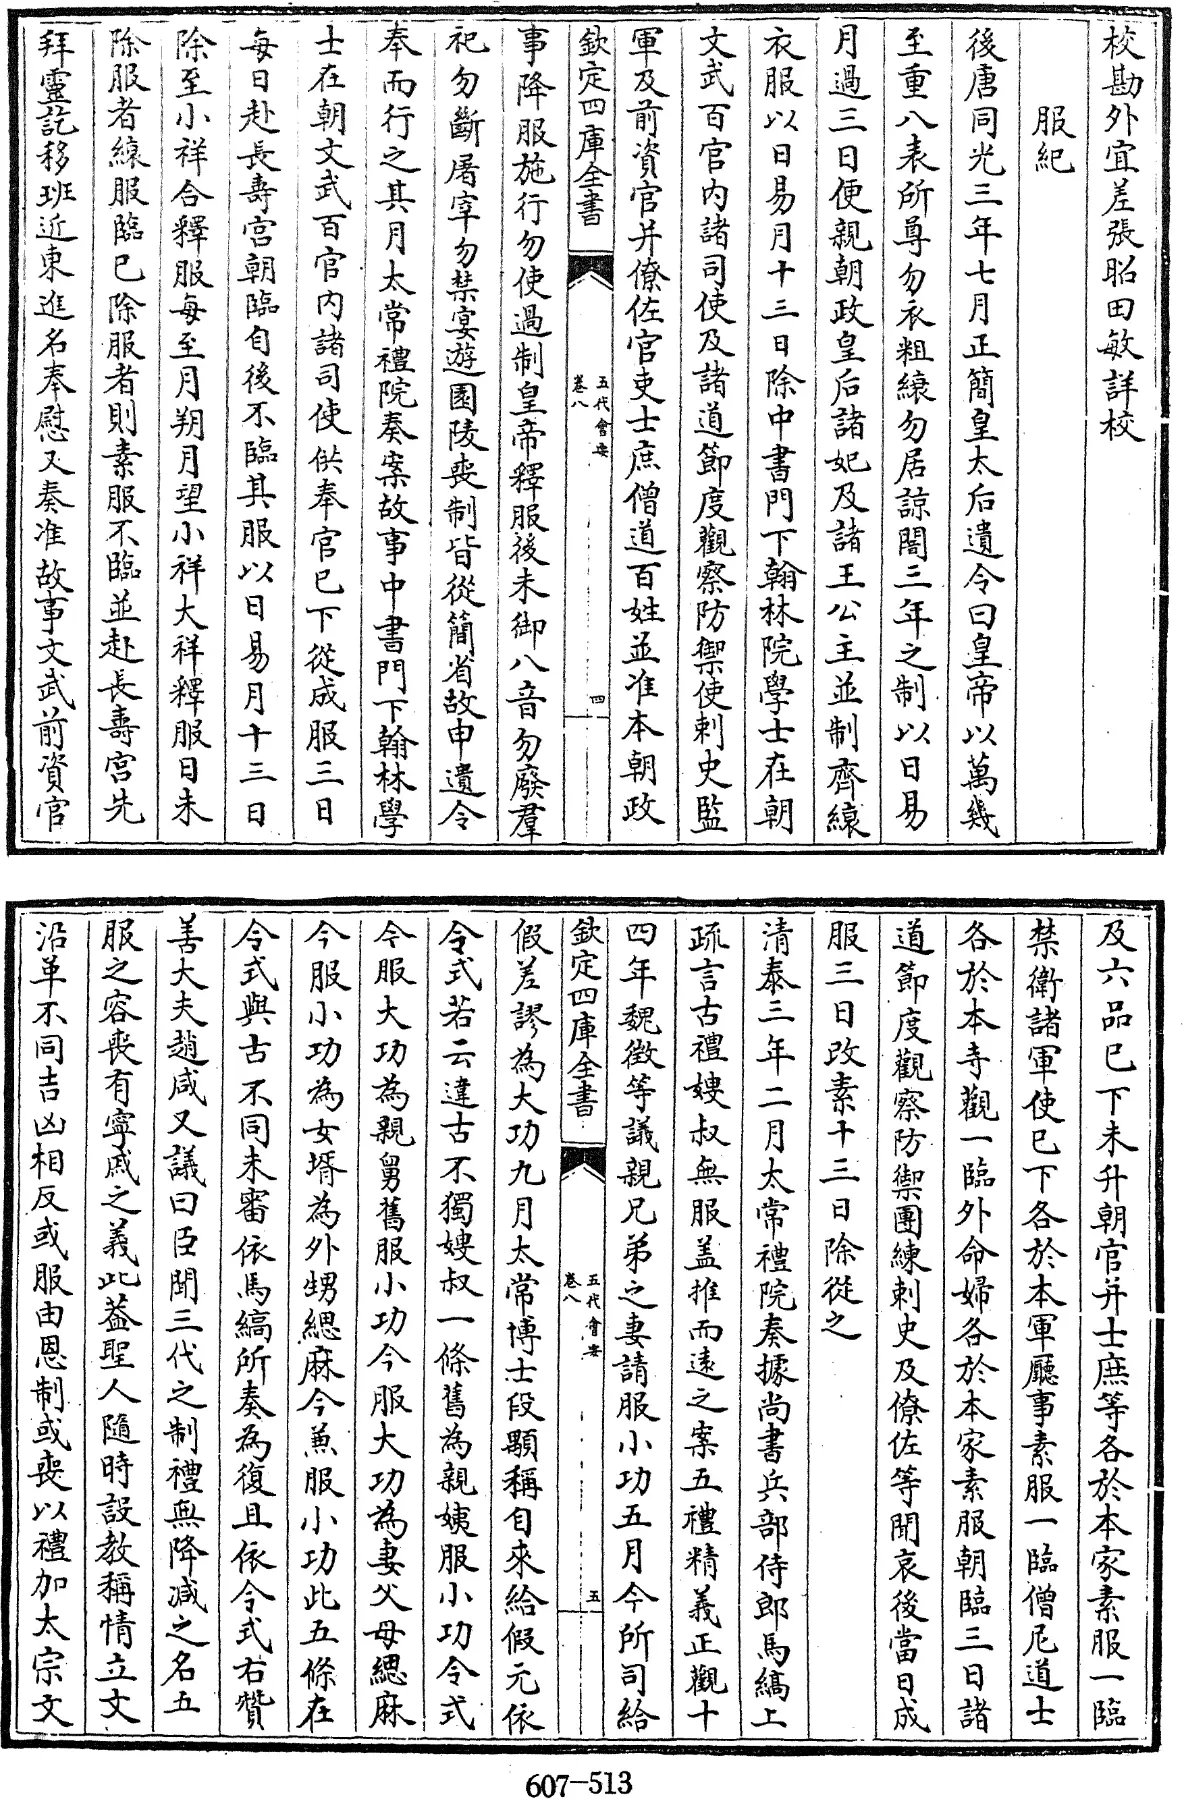 校勘外宜差張昭田敏詳校
服紀
後唐同光三年七月正簡皇太后遺令曰皇帝以萬幾
至重八表所尊勿衣粗縗勿居諒闇三年之制以日易
月過三日便親朝政皇后諸妃及諸王公主並制齊縗
衣服以日易月十三日除中書門下翰林院學士在朝
文武百官内諸司使及諸道節度觀察防禦使刺史監
軍及前資官并僚佐官吏士庶僧道百姓並准本朝政
欽定四庫全書
五代會要
卷八
四
事降服施行勿使過制皇帝釋服後未御八音勿廢羣
祀勿斷屠宰勿禁宴遊園陵喪制皆從簡省故申遺令
奉而行之其月太常禮院奏案故事中書門下翰林學
士在朝文武百官内諸司使供奉官已下從成服三日
每日赴長壽宫朝臨自後不臨其服以日易月十三日
除至小祥合釋服每至月朔月望小祥大祥釋服日未
除服者縗服臨已除服者則素服不臨並赴長壽宫先
拜靈訖移班近東進名奉慰又奏准故事文武前資官
及六品已下未升朝官并士庶等各於本家素服一臨
禁衛諸軍使已下各於本軍廳事素服一臨僧尼道士
各於本寺觀一臨外命婦各於本家素服朝臨三日諸
道節度觀察防禦團練刺史及僚佐等聞哀後當日成
服三日改素十三日除從之
清泰三年二月太常禮院奏據尚書兵部侍郎馬縞上
疏言古禮嫂叔無服蓋推而遠之案五禮精義正觀十
四年魏徵等議親兄弟之妻請服小功五月今所司給
欽定四庫全書
五代會要
卷八
五
假差謬為大功九月太常博士段顒稱自來給假元依
令式若云違古不獨嫂叔一條舊為親姨服小功令式
今服大功為親舅舊服小功今服大功為妻父母緦麻
今服小功為女壻為外甥緦麻今兼服小功此五條在
令式與古不同未審依馬縞所奏為復且依令式右贊
善大夫趙咸又議曰臣聞三代之制禮無降減之名五
服之容喪有寧戚之義此蓋聖人隨時設教稱情立文
沿革不同吉凶相反或服由恩制或喪以禮加太宗文
607-513